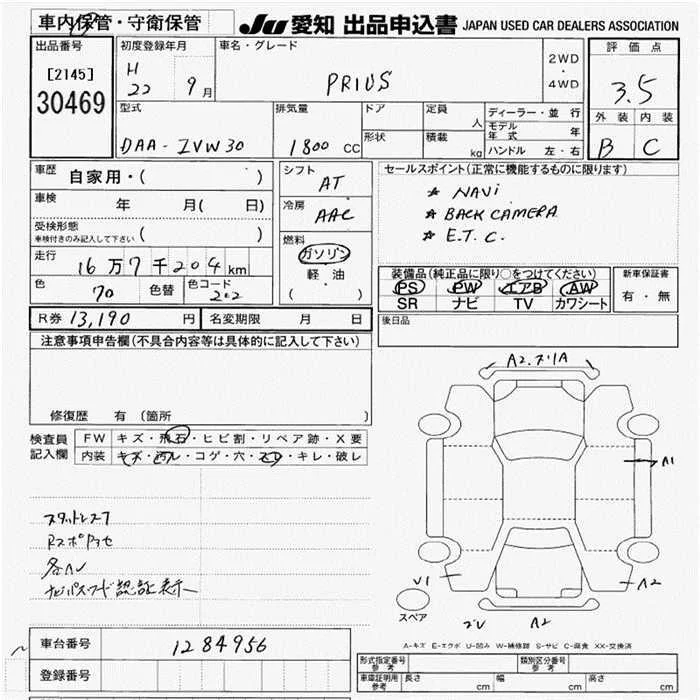 車内保管・守衛保管
JU 愛知 出品申込書 JAPAN USED CAR DEALERS ASSOCIATION
出品番号
[2145]
30469
初度登録年月
H
22 9 月
車名・グレード
PRIUS
2WD
・
4WD
評価点
3.5
外装 内装
B C
型式
DAA-ZVW30
排気量
1800 CC
ドア
形状
定員
人
積載
kg
ディーラー・並行
モデル年式 年
ハンドル 左・右
車歴
自家用・( )
車検
年 月( 日)
受検形態
車検付きのみ記入して下さい ( )
走行
16万7千204km
色
70 色替
色コード
202
シフト
AT
冷房
AAC
燃料
ガソリン
軽・油
( )
セールスポイント(正常に機能するものに限ります)
☆ NAVi
☆ BACK CAMERA
☆ E.T.C.
装備品(純正品に限り○をつけてください)
PS PW エアB AW
SR ナビ TV カワシート
新車保証書
有・無
R券 13,190 円
名変期限 月 日
後日品
注意事項申告欄(不具合内容等は具体的に記入して下さい)
修復歴 有 〔箇所 〕
検査員
記入欄
FW キズ・飛石・ヒビ割・リペア跡・X要
内装 キズ・汚レ・コゲ・穴・スレ・キレ・破レ
スタットレス7
各ヘレ
ナビパスワード認証表示
A2.ズリA
A1
V1
A2
スペア
A2
A-キズ E-エクボ U-凹み W-補修跡 S-サビ C-腐食 XX-交換済
車台番号
1284956
登録番号
形式指定番号
参考
類別区分番号
参考
車庫証明用
参考
長さ cm
幅 cm
高さ cm